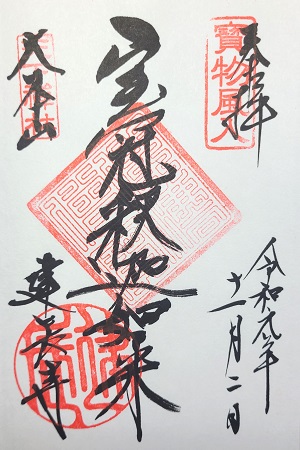 奉拝
寶物風入
令和元年
十一月二日
宝冠釈迦如来
大本山
建長寺